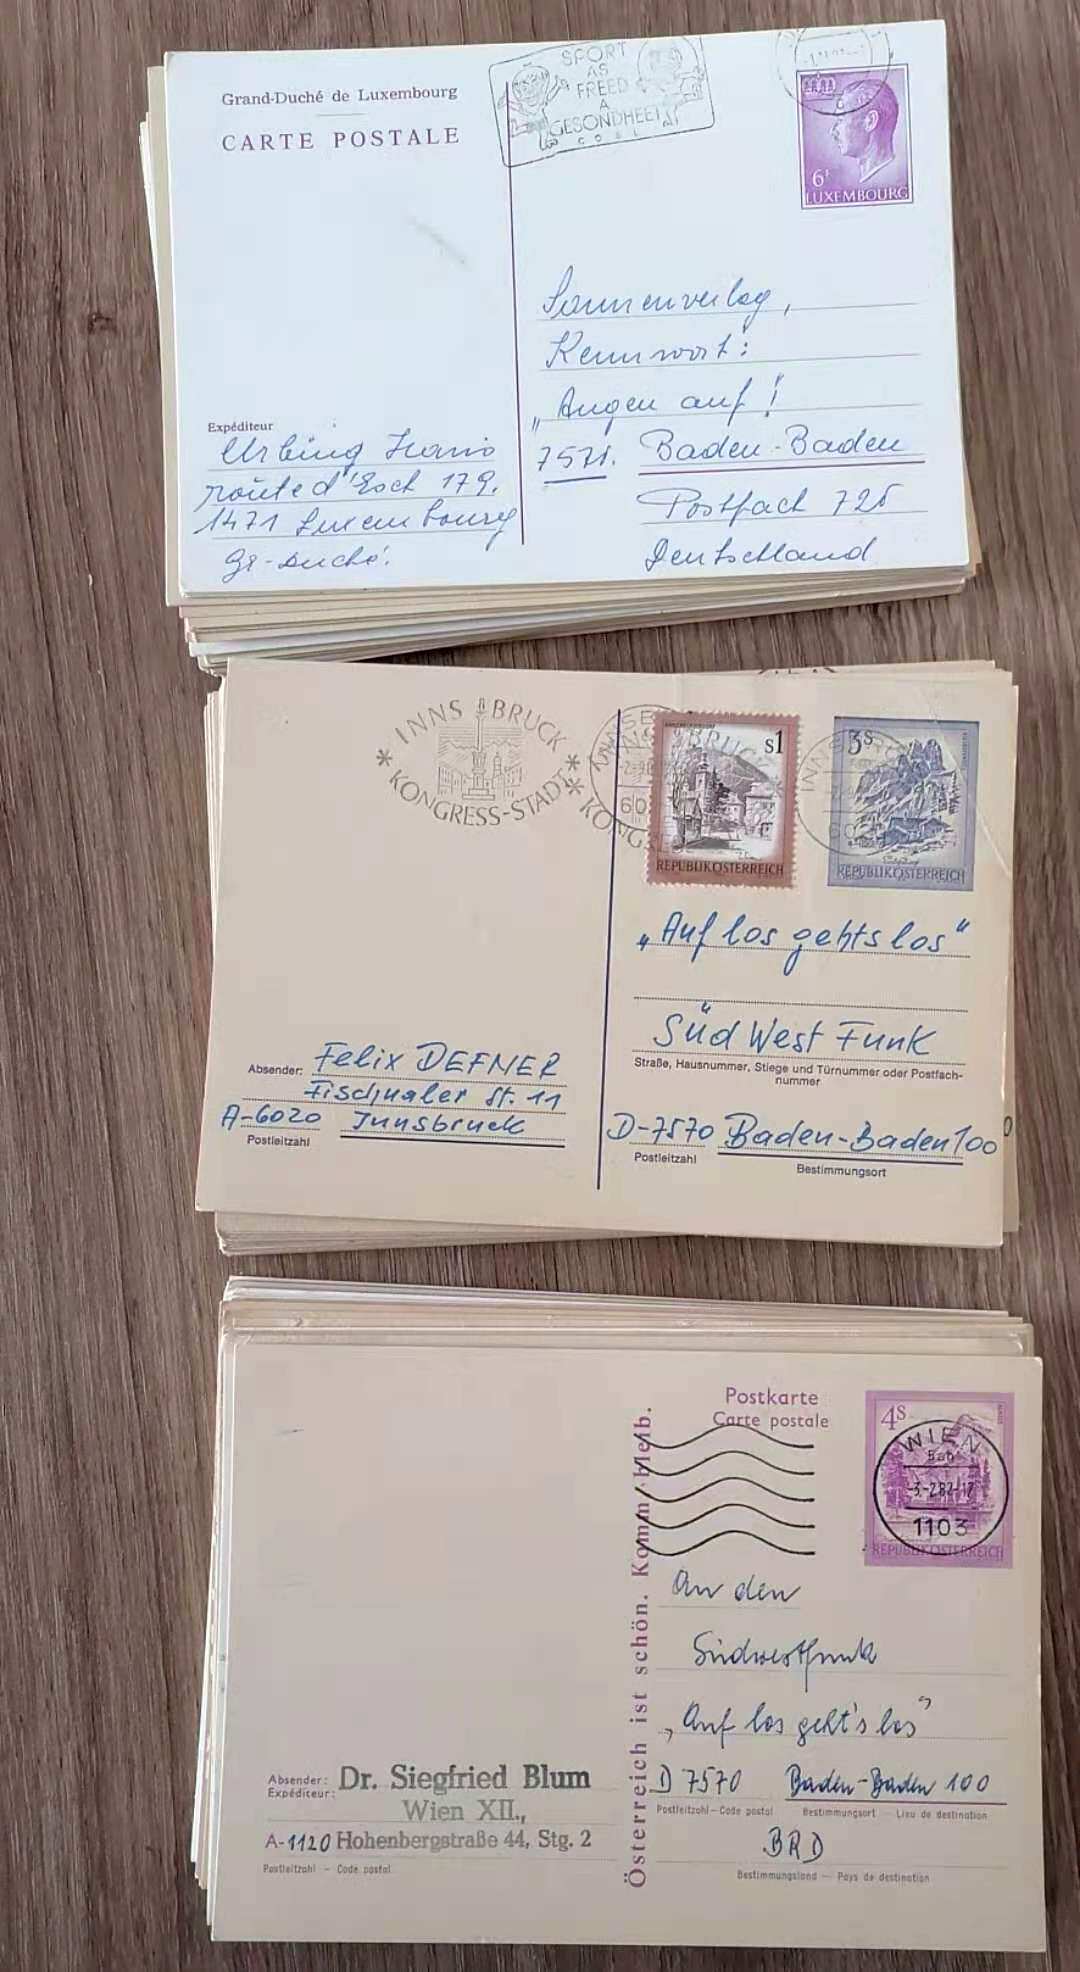 Grand-Duché de Luxembourg
CARTE POSTALE
SPORT
AS
FREED
A
GESONDHEET
COSL
6F
LUXEMBOURG
Sonnenverlag,
Kennwort:
„Augen auf!
7571. Baden-Baden
Postfach 725
Deutschland
Expéditeur
route d'Esch 179.
1471 Luxembourg
Gr-Duché.
INNSBRUCK
KONGRESS-STADT
s1
REPUBLIK ÖSTERREICH
3s
REPUBLIK ÖSTERREICH
„Auf los gehts los"
Süd West Funk
Straße, Hausnummer, Stiege und Türnummer oder Postfach-
nummer
D-7570 Baden-Baden 100
Postleitzahl
Bestimmungsort
Absender: Felix DEFNER
Fischnaler St. 11
A-6020 Innsbruck
Postleitzahl
Postkarte
Carte postale
4s
WIEN
1103
REPUBLIK ÖSTERREICH
Österreich ist schön. Komm, bleib.
An den
Südwestfunk
„Auf los geht's los"
D 7570 Baden-Baden 100
Postleitzahl – Code postal
Bestimmungsort – Lieu de destination
BRD
Bestimmungsland – Pays de destination
Absender:
Expéditeur:
Dr. Siegfried Blum
Wien XII.,
A-1120 Hohenbergstraße 44, Stg. 2
Postleitzahl – Code postal